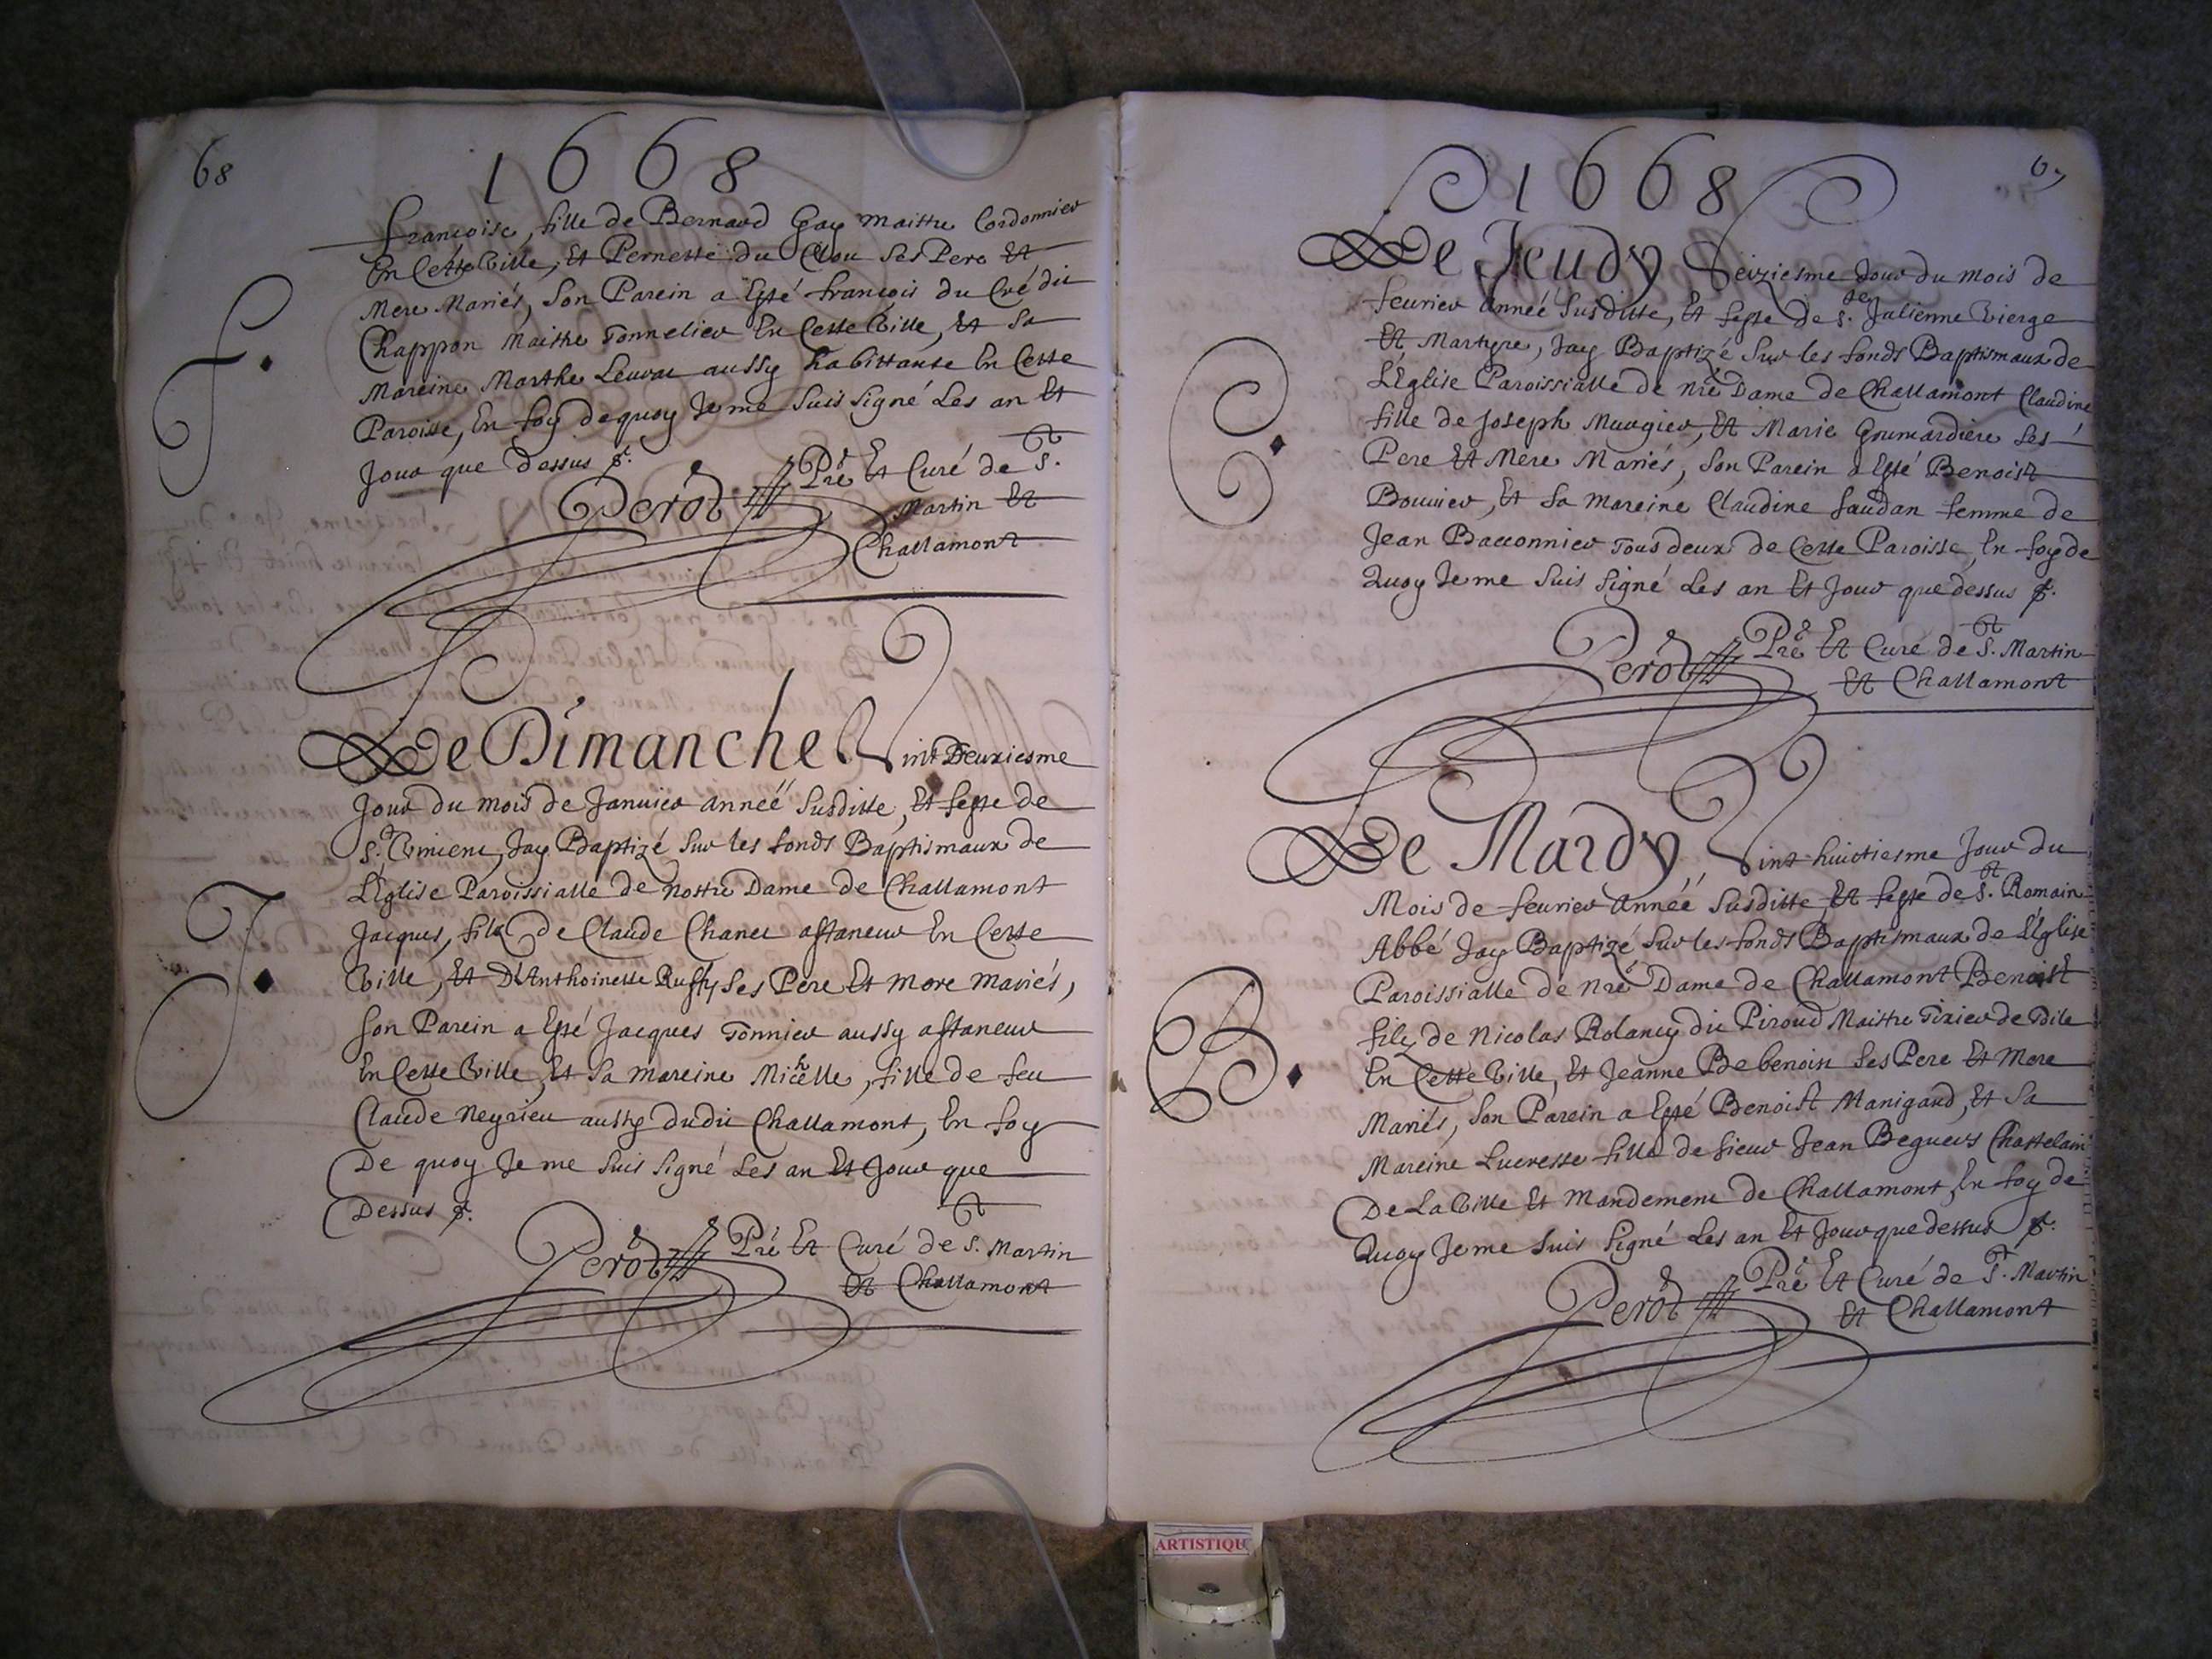 68
1668
françoise, fille de Bernard Gay maittre Cordonnier
En Cette Ville, Et Pernette du Clou Ses Pere Et
Mere Mariés, Son Parein a Esté françois du Crédit
Chappon Maittre Tonnelier En Cette Ville, Et Sa
Mareine Marthe aussy habittante En Cette
Paroisse, En foy dequoy Je me Suis Signé Les an Et
Jour que Dessus
F.
Perot Pre Et Curé de S.t
Martin Et
Challamont
Le Dimanche Vint Deuxiesme
Jour du mois de Janvier année Susditte, Et feste de
S.t Vincent, Jay Baptizé Sur les fonds Baptismaux de
LÉglise Paroissialle de Nostre Dame de Challamont
Jacques, filz de Claude Chanel affaneur En Cette
Ville, Et D'Anthoinette Ruffy Ses Pere Et Mere Mariés,
J.
Son Parein a Esté Jacques Tonnier aussy affaneur
En Cette Ville, Et Sa Mareine Michelle, fille de feu
Claude Neyrieu aussy dudit Challamont, En foy
De quoy Je me Suis Signé Les an Et Jour que
Dessus
Perot Pre Et Curé de S.t Martin
Et Challamont
1668
69
Le Jeudy Seiziesme Jour du mois de
feurier année Susditte, Et feste de S.te Julienne Vierge
Et Martyre, Jay Baptizé Sur les fonds Baptismaux de
LÉglise Paroissialle de Nre Dame de Challamont Claudine
fille de Joseph Mugnier, Et Marie Goumardiere Ses
C.
Pere Et Mere Mariés, Son Parein a Esté Benoist
Bouuier, Et Sa Mareine Claudine faudan femme de
Jean Baconnier Tous deux de Cette Paroisse, En foy de
Quoy Je me Suis Signé Les an Et Jour que dessus
Perot Pre Et Curé de S.t Martin
Et Challamont
Le Mardy Vint huictiesme Jour du
Mois de feurier Année Susditte Et feste de S.t Romain
Abbé Jay Baptizé Sur les fonds Baptismaux de LÉglise
Paroissialle de Nre Dame de Challamont Benoist
filz de Nicolas Rolancy dit Piroud Maittre Tixier de Toile
B.
En Cette Ville, Et Jeanne Bebenoin Ses Pere Et Mere
Mariés, Son Parein a Esté Benoist Manigand, Et Sa
Mareine Lucresse fille de Sieur Jean Beguers Chastelain
De La Ville Et Mandement de Challamont, En foy de
Quoy Je me Suis Signé Les an Et Jour que dessus
Perot Pre Et Curé de S.t Martin
Et Challamont
ARTISTIQU